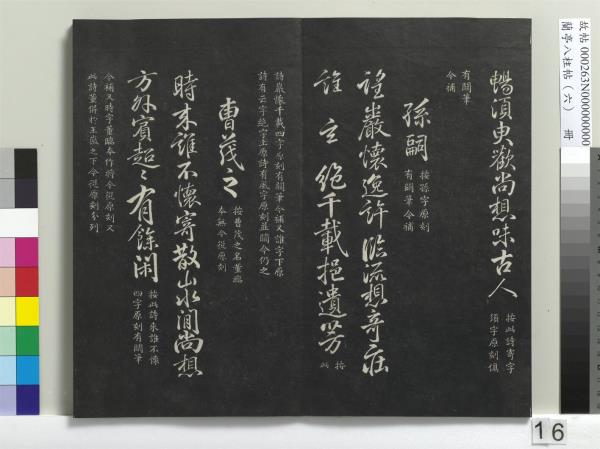 暢須臾歡尚想味古人
按此詩寄字
須字原刻傎
有闕筆
今補
孫嗣
按孫字原刻
有闕筆今補
望巖懷逸許臨流想奇莊
誰言絕千載挹遺芳
按
此
詩巖懷千載四字原刻有闕筆今補又誰字下原
詩有云字絕字上原詩有風字原刻並闕今仍之
曹茂之
按曹茂之名董臨
本無今從原刻
時來誰不懷寄散山水間尚想
方外賓超〻有餘閑
按此詩來誰不懷
四字原刻有闕筆
今補又時字董臨本作將今從原刻又
此詩董併於王 之下今從原刻分列
故帖 000263N000000000
蘭亭八柱帖(六) 冊
16